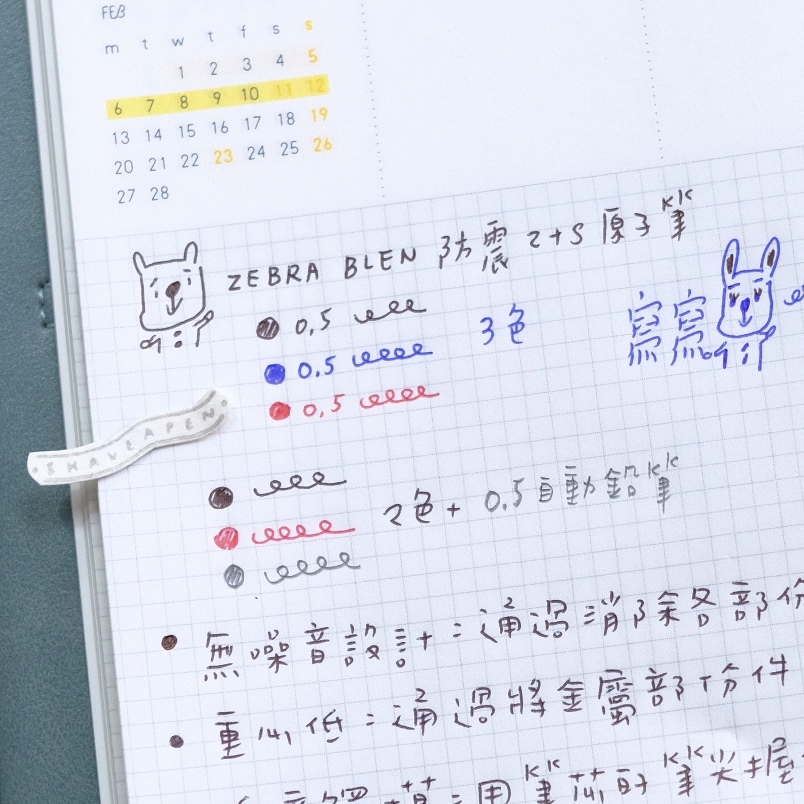 FEB
m t w t f s s
1 2 3 4 5
6 7 8 9 10 11 12
13 14 15 16 17 18 19
20 21 22 23 24 25 26
27 28
ZEBRA BLEN 防震 2+S 原子筆
0.5
0.5
0.5
3色
窩窩
I HAVE A PEN
2色 + 0.5 自動鉛筆
無噪音設計 = 通過消除各部份
重心低 = 通過將金屬部份件
用筆芯的筆尖